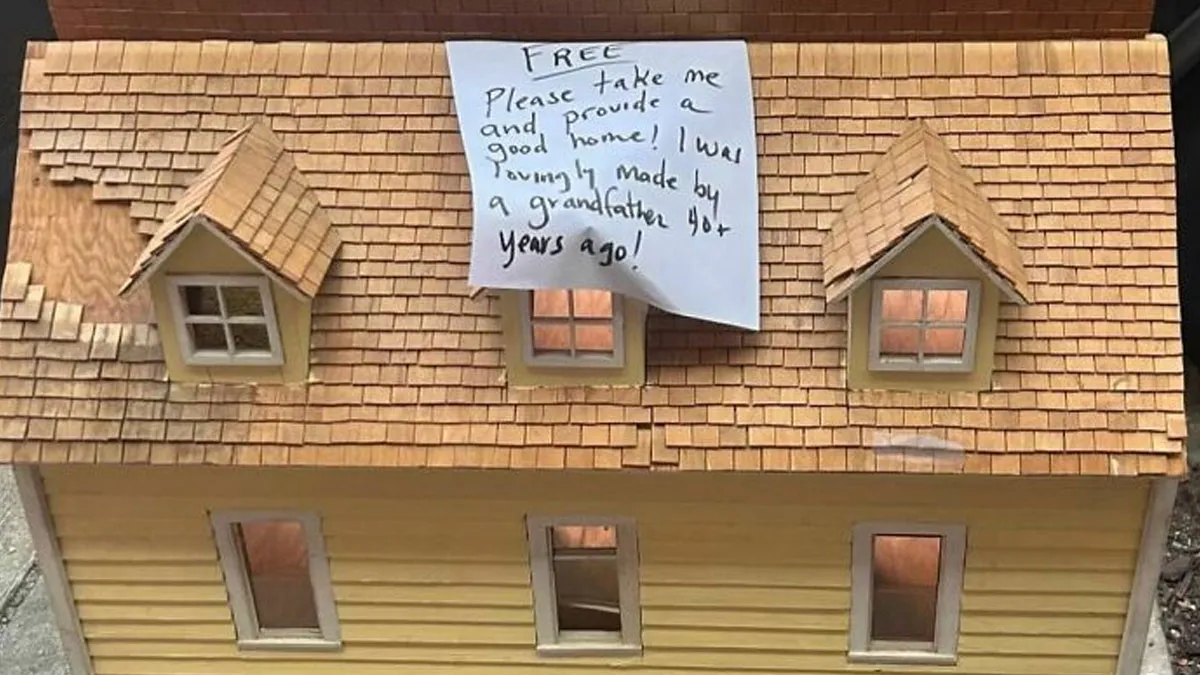 FREE
Please take me
and provide a
good home! I was
lovingly made by
a grandfather 40+
years ago!